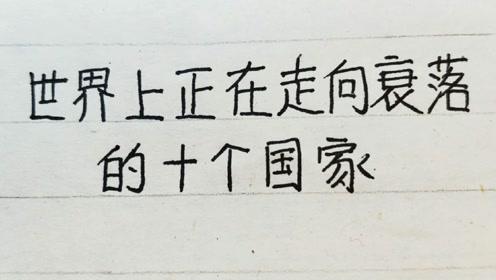 世界上正在走向衰落
的十个国家